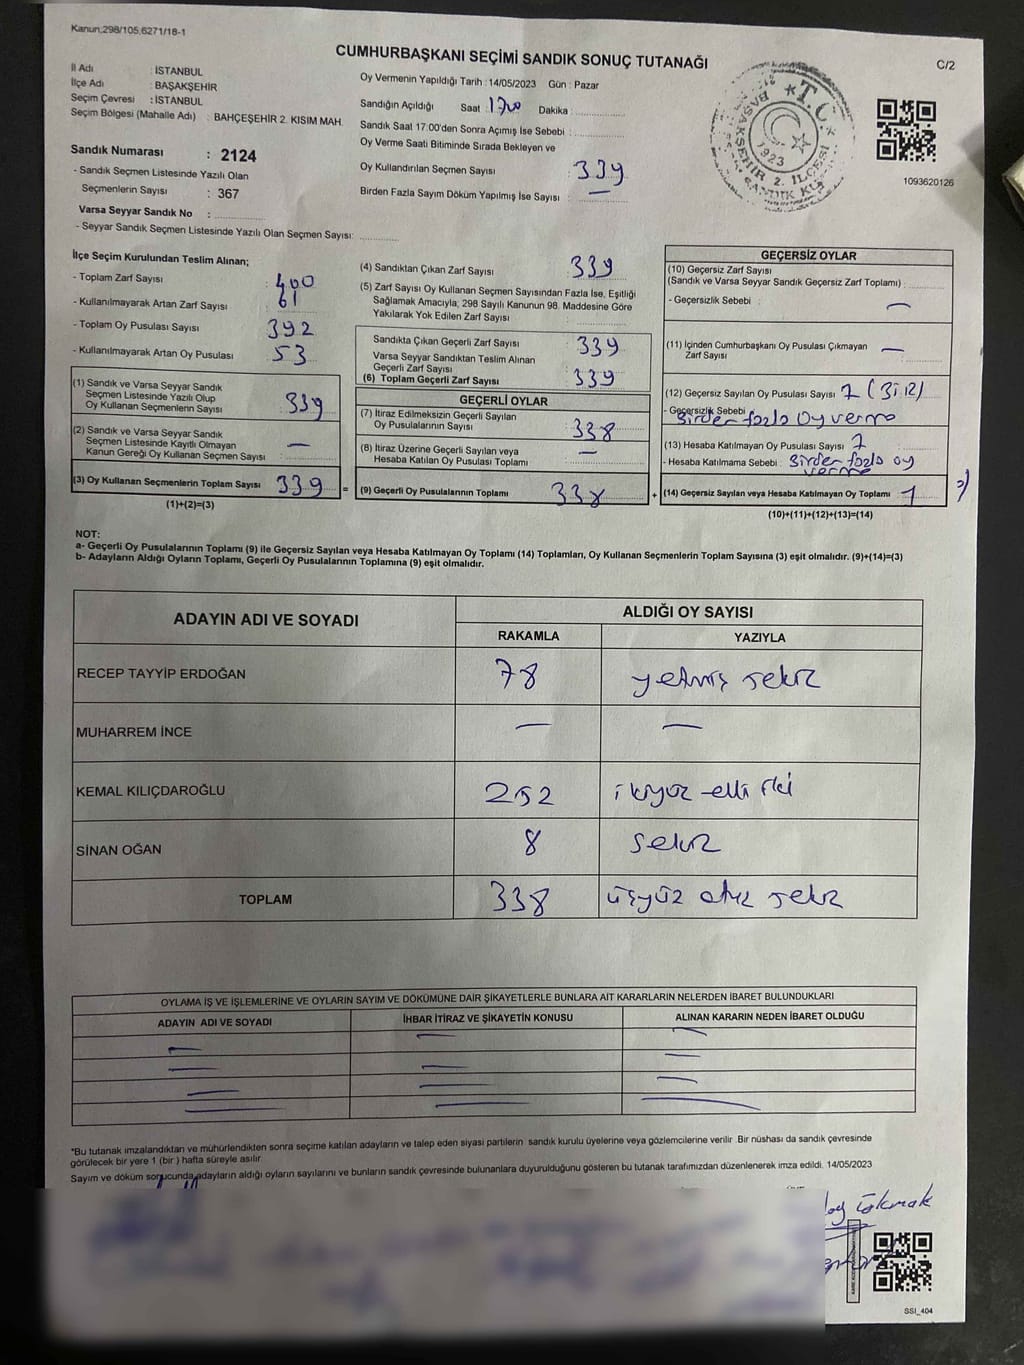 Kanun;298/105,6271/18-1
CUMHURBAŞKANI SEÇİMİ SANDIK SONUÇ TUTANAĞI
C/2
İl Adı : İSTANBUL
İlçe Adı : BAŞAKŞEHİR
Seçim Çevresi : İSTANBUL
Seçim Bölgesi (Mahalle Adı) : BAHÇEŞEHİR 2. KISIM MAH.
Sandık Numarası : 2124
- Sandık Seçmen Listesinde Yazılı Olan
Seçmenlerin Sayısı : 367
Varsa Seyyar Sandık No :
- Seyyar Sandık Seçmen Listesinde Yazılı Olan Seçmen Sayısı:
Oy Vermenin Yapıldığı Tarih : 14/05/2023 Gün : Pazar
Sandığın Açıldığı Saat : 1700 Dakika :
Sandık Saat 17:00'den Sonra Açımış İse Sebebi :
Oy Verme Saati Bitiminde Sırada Bekleyen ve
Oy Kullandırılan Seçmen Sayısı : 339
Birden Fazla Sayım Döküm Yapılmış İse Sayısı : —
T.C.
BAŞAKŞEHİR 2. İLÇESİ
SANDIK KURULU
1923
1093620126
İlçe Seçim Kurulundan Teslim Alınan;
- Toplam Zarf Sayısı : 400
- Kullanılmayarak Artan Zarf Sayısı : 61
- Toplam Oy Pusulası Sayısı : 392
- Kullanılmayarak Artan Oy Pusulası : 53
(1) Sandık ve Varsa Seyyar Sandık
Seçmen Listesinde Yazılı Olup
Oy Kullanan Seçmenlerin Sayısı : 339
(2) Sandık ve Varsa Seyyar Sandık
Seçmen Listesinde Kayıtlı Olmayan
Kanun Gereği Oy Kullanan Seçmen Sayısı : —
(3) Oy Kullanan Seçmenlerin Toplam Sayısı 339 =
(1)+(2)=(3)
(4) Sandıktan Çıkan Zarf Sayısı : 339
(5) Zarf Sayısı Oy Kullanan Seçmen Sayısından Fazla İse, Eşitliği
Sağlamak Amacıyla; 298 Sayılı Kanunun 98. Maddesine Göre
Yakılarak Yok Edilen Zarf Sayısı :
Sandıkta Çıkan Geçerli Zarf Sayısı : 339
Varsa Seyyar Sandıktan Teslim Alınan
Geçerli Zarf Sayısı :
(6) Toplam Geçerli Zarf Sayısı : 339
GEÇERLİ OYLAR
(7) İtiraz Edilmeksizin Geçerli Sayılan
Oy Pusulalarının Sayısı : 338
(8) İtiraz Üzerine Geçerli Sayılan veya
Hesaba Katılan Oy Pusulası Toplamı : —
(9) Geçerli Oy Pusulalarının Toplamı : 338 +
GEÇERSİZ OYLAR
(10) Geçersiz Zarf Sayısı
(Sandık ve Varsa Seyyar Sandık Geçersiz Zarf Toplamı) :
- Geçersizlik Sebebi : —
(11) İçinden Cumhurbaşkanı Oy Pusulası Çıkmayan
Zarf Sayısı : —
(12) Geçersiz Sayılan Oy Pusulası Sayısı : 1 (Bir)
- Geçersizlik Sebebi : Birden fazla oy verme
(13) Hesaba Katılmayan Oy Pusulası Sayısı : 1
- Hesaba Katılmama Sebebi : Birden fazla oy
verme
(14) Geçersiz Sayılan veya Hesaba Katılmayan Oy Toplamı : 1
(10)+(11)+(12)+(13)=(14)
NOT:
a- Geçerli Oy Pusulalarının Toplamı (9) ile Geçersiz Sayılan veya Hesaba Katılmayan Oy Toplamı (14) Toplamları, Oy Kullanan Seçmenlerin Toplam Sayısına (3) eşit olmalıdır. (9)+(14)=(3)
b- Adayların Aldığı Oyların Toplamı, Geçerli Oy Pusulalarının Toplamına (9) eşit olmalıdır.
ADAYIN ADI VE SOYADI
ALDIĞI OY SAYISI
RAKAMLA YAZIYLA
RECEP TAYYİP ERDOĞAN 78 yetmiş sekiz
MUHARREM İNCE — —
KEMAL KILIÇDAROĞLU 252 ikiyüz elli iki
SİNAN OĞAN 8 sekiz
TOPLAM 338 üçyüz otuz sekiz
OYLAMA İŞ VE İŞLEMLERİNE VE OYLARIN SAYIM VE DÖKÜMÜNE DAİR ŞİKAYETLERLE BUNLARA AİT KARARLARIN NELERDEN İBARET BULUNDUKLARI
ADAYIN ADI VE SOYADI İHBAR İTİRAZ VE ŞİKAYETİN KONUSU ALINAN KARARIN NEDEN İBARET OLDUĞU
— — —
— — —
— — —
— — —
*Bu tutanak imzalandıktan ve mühürlendikten sonra seçime katılan adayların ve talep eden siyasi partilerin sandık kurulu üyelerine veya gözlemcilerine verilir. Bir nüshası da sandık çevresinde
görülecek bir yere 1 (bir) hafta süreyle asılır.
Sayım ve döküm sonucunda adayların aldığı oyların sayılarını ve bunların sandık çevresinde bulunanlara duyurulduğunu gösteren bu tutanak tarafımızdan düzenlenerek imza edildi. 14/05/2023
SSI_404